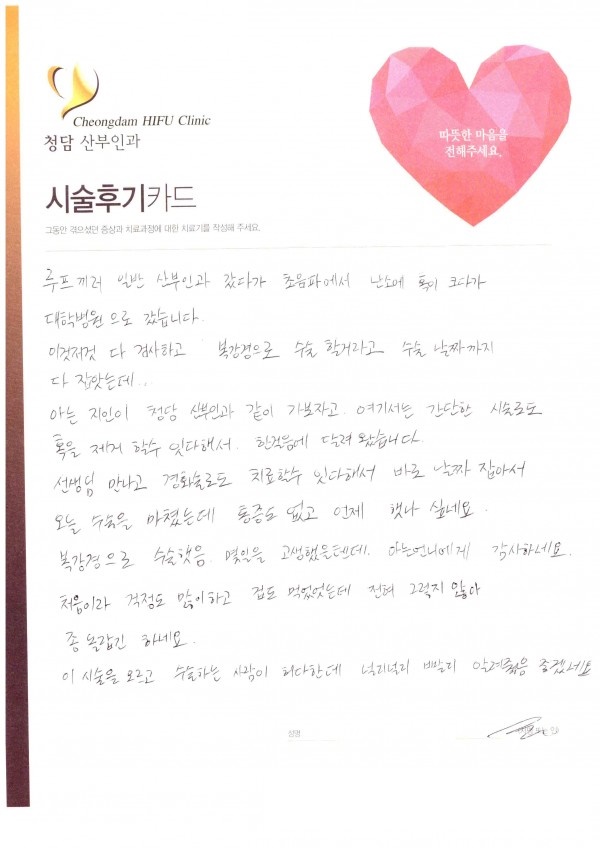 Cheongdam HIFU Clinic
청담 산부인과
따뜻한 마음을
전해주세요.
시술후기카드
그동안 겪으셨던 증상과 치료과정에 대한 치료기를 작성해 주세요.
루프 끼러 일반 산부인과 갔다가 초음파에서 난소에 혹이 크다가
대학병원 으로 갔습니다.
이것저것 다 검사하고 복강경으로 수술 할거라고 수술 날짜까지
다 잡았는데..
아는 지인이 청담 산부인과 같이 가보자고. 여기서는 간단한 시술로도
혹을 제거 할수 잇다해서. 한걸음에 달려 왔습니다.
선생님 만나고 경화술로도 치료할수 잇다해서 바로 날짜 잡아서
오늘 수술을 마쳤는데 통증도 없고 언제 했나 싶네요.
복강경으로 수술햇음. 몇일을 고생했을텐데. 아는언니에게 감사하네요.
처음이라 걱정도 많이하고 겁도 먹었었는데 전혀 그렇지 않아
좀 놀랍긴 하네요.
이 시술을 모르고 수술하는 사람이 허다한데 널리널리 빨리 알려졌음 좋겠네요
성명